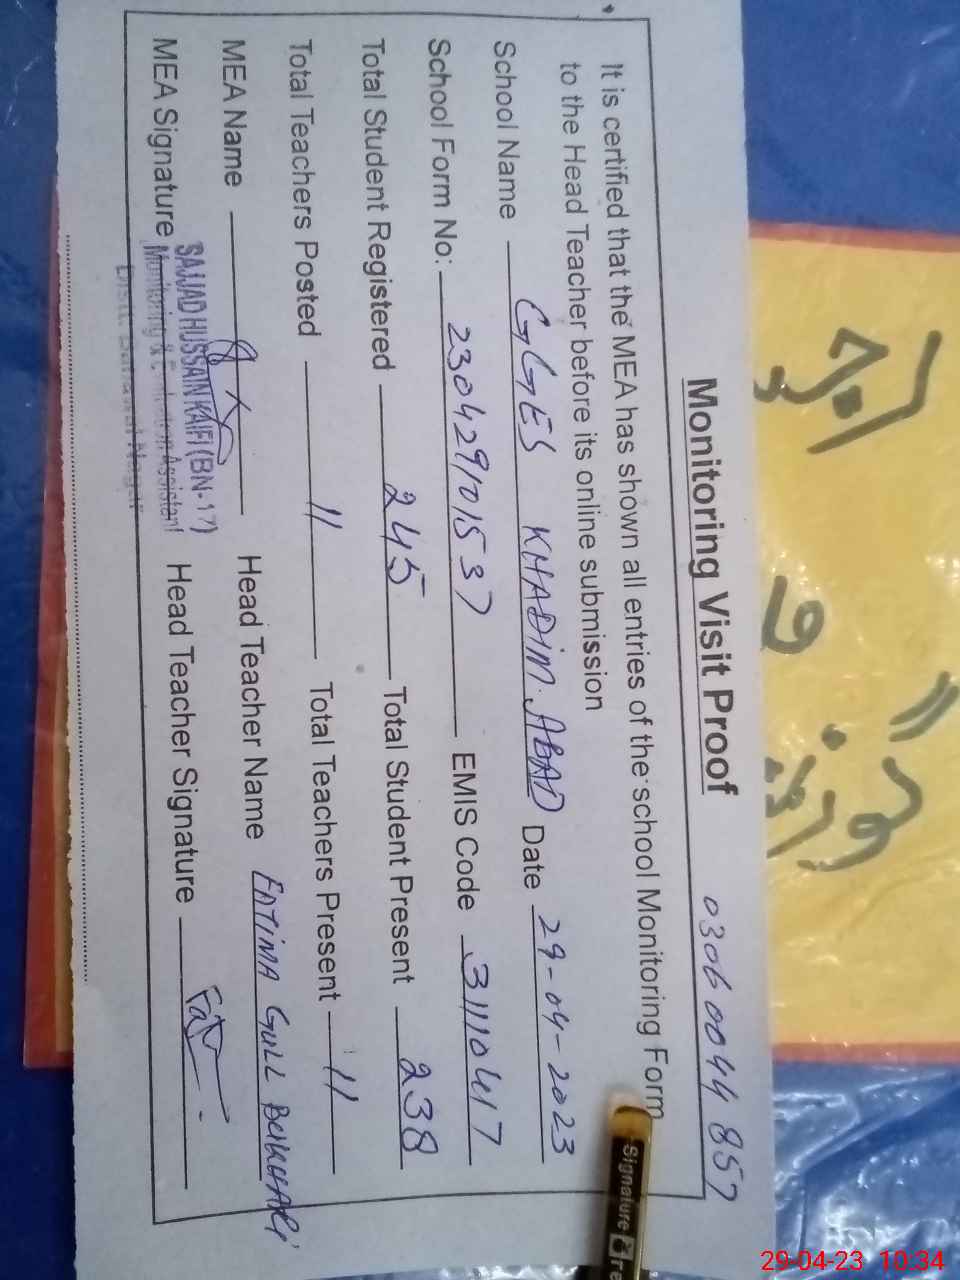 Monitoring Visit Proof 0306 0044 857
It is certified that the MEA has shown all entries of the school Monitoring Form
to the Head Teacher before its online submission
School Name GGES KHADIM ABAD Date 29-04-2023
School Form No: 230429101537 EMIS Code 31110417
Total Student Registered 245 Total Student Present 238
Total Teachers Posted 11 Total Teachers Present 11
MEA Name Head Teacher Name FATIMA GULL BUKHARI
MEA Signature Head Teacher Signature
SAJJAD HUSSAIN KAIFI (BN-17)
Monitoring & Evaluation Assistant
Signature
29-04-23 10:34